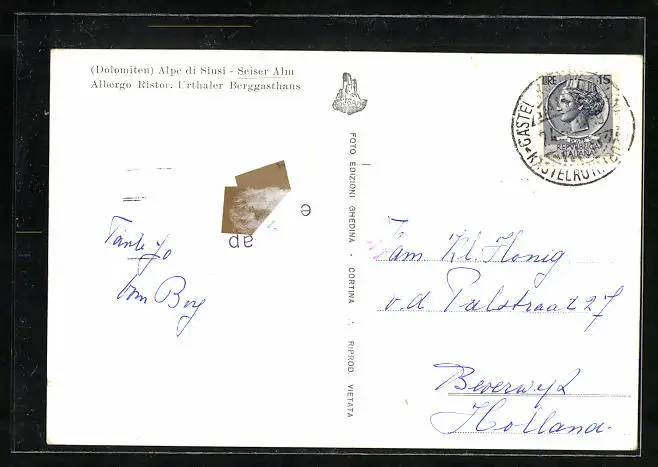 (Dolomiten) Alpe di Siusi - Seiser Alm
Albergo Ristor. Urthaler Berggasthaus
LIRE 15
REPVBBLICA
ITALIANA
CASTEL
KASTELRUT
FOTO EDIZIONI GHEDINA - CORTINA - RIPROD. VIETATA
e
ap
Tante Jo
Fam Kl. Honig
v.d. 27
Beverwijk
Holland.